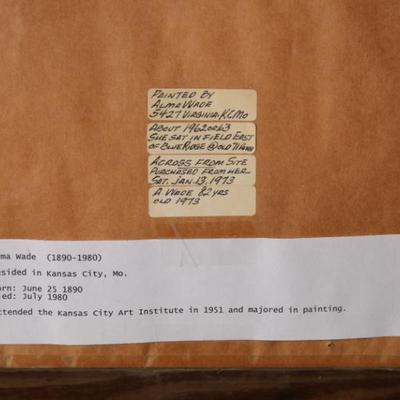 PAINTED BY
ALMA WADE
5427 VIRGINIA, K.C. MO
ABOUT 1962 OR 63
SHE SAT IN FIELD EAST
OF BLUE RIDGE @ OLD
ACROSS FROM SITE
PURCHASED FROM HER
SAT. JAN. 13, 1973
A. WADE 82 YRS
OLD 1973
ma Wade (1890-1980)
esided in Kansas City, Mo.
orn: June 25 1890
ed: July 1980
ttended the Kansas City Art Institute in 1951 and majored in painting.